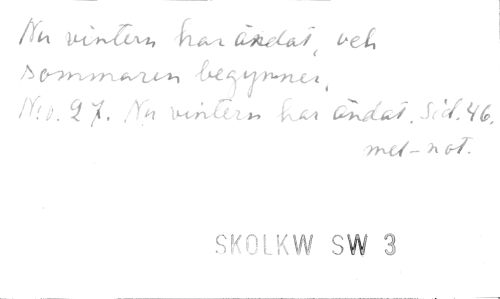 Nu vintern har ändat, och
sommaren begynner,
N:o. 27. Nu vintern har ändat. Sid. 46.
mel-not.
SKOLKW SW 3